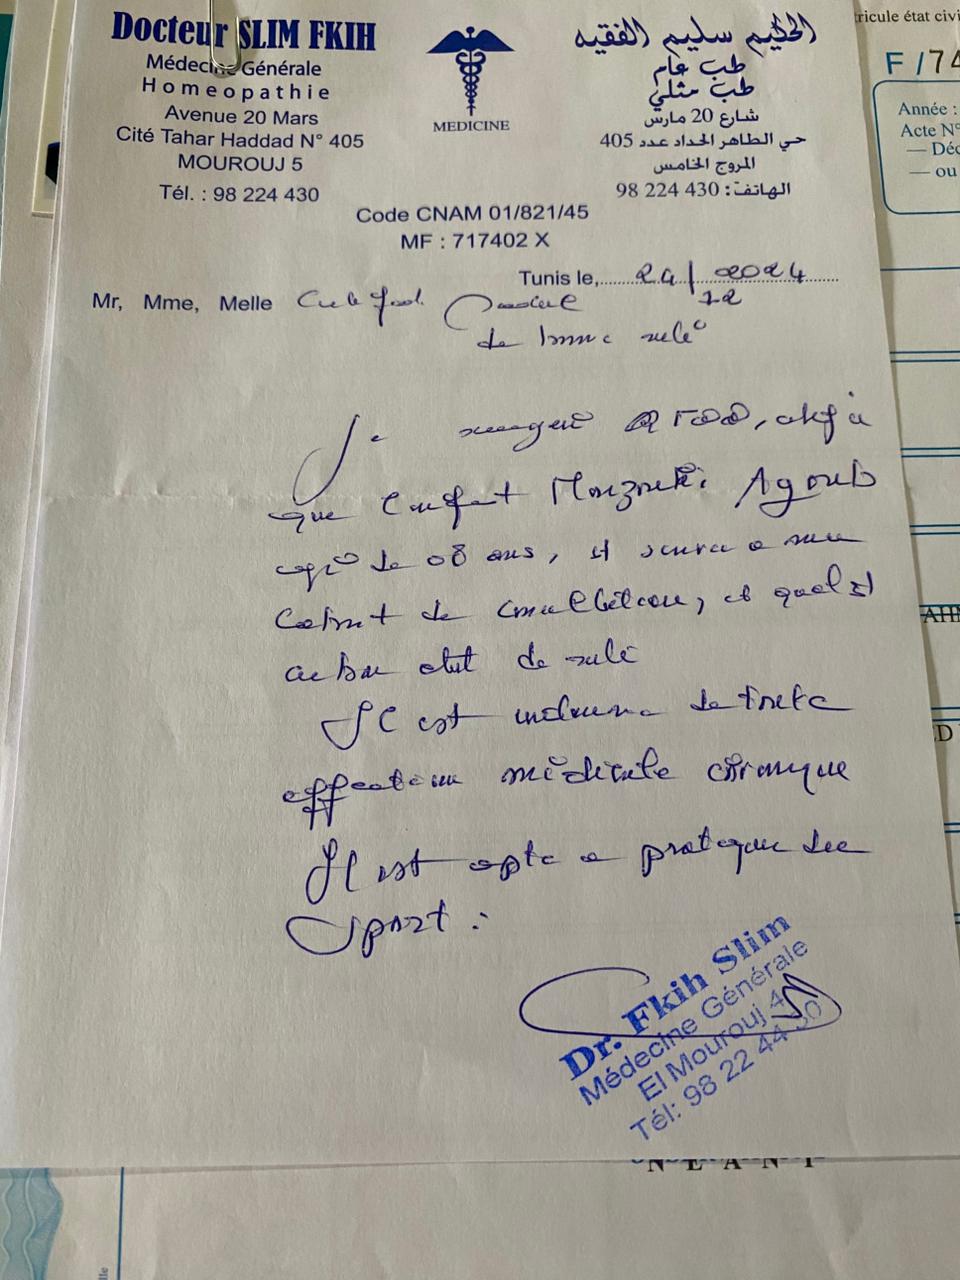 Docteur SLIM FKIH
Médecine Générale
Homeopathie
Avenue 20 Mars
Cité Tahar Haddad N° 405
MOUROUJ 5
Tél. : 98 224 430
MEDICINE
الحكيم سليم الفقيه
طب عام
طب مثلي
شارع 20 مارس
حي الطاهر الحداد عدد 405
المروج الخامس
الهاتف : 98 224 430
Code CNAM 01/821/45
MF : 717402 X
Tunis le, 24/12 2024
Mr, Mme, Melle Certificat médical
de bonne santé
Je soussigné certifie
que l'enfant Marzouki Ayoub
agé de 08 ans, à mon
cabinet de consultation, et qu'il est
en bon état de santé
Il est indemne de toute
affection médicale chronique
Il est apte a pratiquer le
sport.
Dr. Fkih Slim
Médecine Générale
El Mourouj 4
Tél: 98 22 44 30
ricule état civi
F / 74
Année :
Acte N°
— Déc
— ou
N E A N T